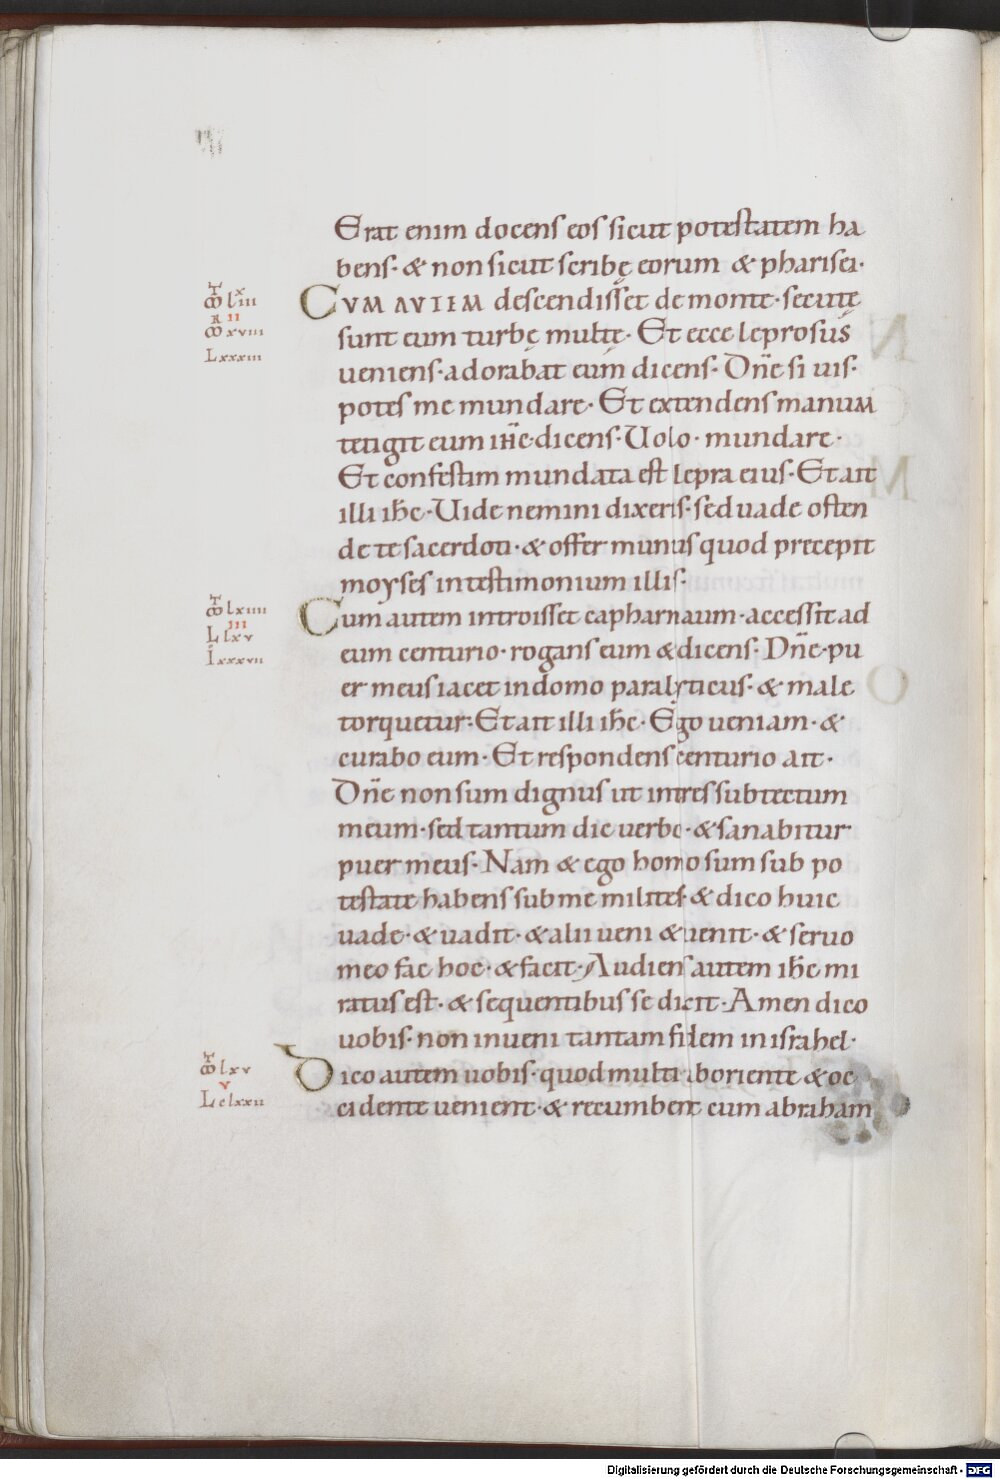 Erat enim docens eos sicut potestatem ha
bens· & non sicut scribę eorum & pharisei·
CVM AVTEM descendisset de monte· secutę
sunt eum turbę multę· Et ecce leprosus
ueniens· adorabat eum dicens· Dn̄e si uis·
potes me mundare· Et extendens manum
tetigit eum ih̄c· dicens· Uolo· mundare·
Et confestim mundata est lepra eius· Et ait
illi ih̄c· Uide nemini dixeris· sed uade osten
de te sacerdoti· & offer munus quod precepit
moyses in testimonium illis·
Cum autem introisset capharnaum· accessit ad
eum centurio· rogans eum & dicens· Dn̄e· pu
er meus iacet in domo paralyticus· & male
torquetur· Et ait illi ih̄c· Ego ueniam· &
curabo eum· Et respondens centurio ait·
Dn̄e non sum dignus ut intres sub tectum
meum· sed tantum dic uerbo· & sanabitur
puer meus· Nam & ego homo sum sub po
testate habens sub me milites· & dico huic
uade· & uadit· & alii ueni & uenit· & seruo
meo fac hoc· & facit· Audiens autem ih̄c mi
ratus est· & sequentibus se dicit· Amen dico
uobis· non inueni tantam fidem in israhel·
Dico autem uobis· quod multi ab oriente & oc
cidente uenient· & recumbent cum abraham
lxiii
II
xviii
Lxxxiii
lxiiii
III
L lxv
I xxxvii
lxv
V
L clxxii
Digitalisierung gefördert durch die Deutsche Forschungsgemeinschaft - DFG